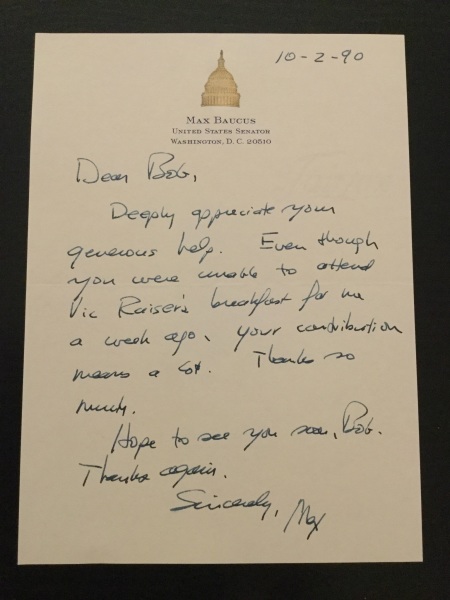 10-2-90
MAX BAUCUS
UNITED STATES SENATOR
WASHINGTON, D. C. 20510
Dear Bob,
Deeply appreciate your
generous help. Even though
you were unable to attend
Vic Raiser's breakfast for me
a week ago, your contribution
means a lot. Thanks so
much.
Hope to see you soon, Bob.
Thanks again.
Sincerely, Max